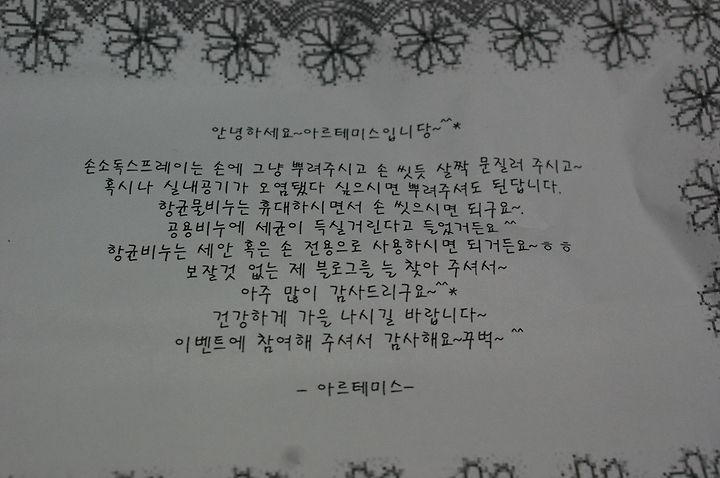 안녕하세요~아르테미스입니당~^^*
손소독스프레이는 손에 그냥 뿌려주시고 손 씻듯 살짝 문질러 주시고~
혹시나 실내공기가 오염됐다 싶으시면 뿌려주셔도 된답니다.
항균물비누는 휴대하시면서 손 씻으시면 되구요~.
공용비누에 세균이 득실거린다고 들었거든요 ^^
항균비누는 세안 혹은 손 전용으로 사용하시면 되거든요~ㅎㅎ
보잘것 없는 제 블로그를 늘 찾아 주셔서~
아주 많이 감사드리구요~^^*
건강하게 가을 나시길 바랍니다~
이벤트에 참여해 주셔서 감사해요~꾸벅~ ^^
- 아르테미스-